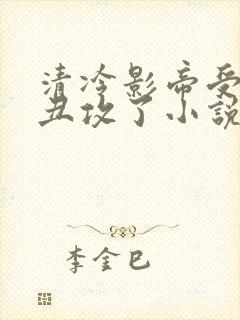 清冷影帝受
丑攻了小説
李金巳